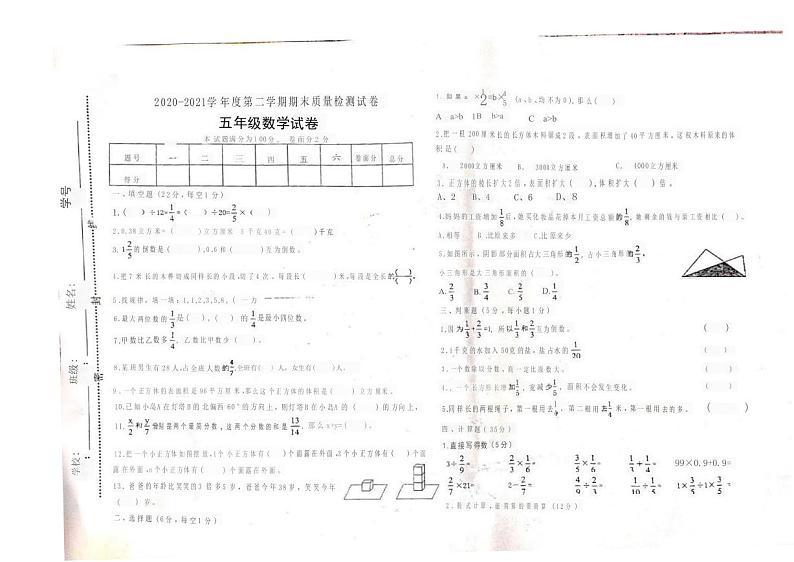 学校： 班级： 姓名： 学号
密 封
2020-2021学年度第二学期期末质量检测试卷
五年级数学试卷
本试题满分为100分。 卷面分2分
题号 一 二 三 四 五 六 卷面分 总分
得分
一、填空题（22分，每空1分）
1.（ ）÷12=1/4=（ ）÷20=2/5×（ ）
2、0.38立方米=（ ）立方厘米 5千克40克=（ ）千克
3、1 2/5的倒数是（ ），0.6和（ ）互为倒数。
4、把7米长的木棒切成同样长的小段，切了4次，每段长（ ）米，每段是全长的( )/( )
5、找规律，填一填：1,1,2,3,5,8,（
6、最大两位数的1/3是（ ），（ ）的1/4是最小四位数。
7、甲数比乙数多1/4，乙数比甲数少（ ）。
8、某班男生有28人，占全班人数的4/7，全班有（ ）人，女生有（ ）人。
9、一个正方体的表面积是96平方厘米，那么这个正方体的体积是（ ）立方厘米。
10、已知小岛A在灯塔B的北偏西60°的方向上，则灯塔B在小岛A的（ ）的方向上，
11、x/2和y/7 是两个最简分数，这两个分数的和是13/14，那么x+y=（ ）。
12、把一个小正方体如图摆放，1个小正方体有（ ）个面露在外面，2个小正方体有（ ）个
面露在外面，n个小正方体有（ ）个面露在外面。
13、爸爸的年龄比笑笑的3倍多5岁，爸爸今年38岁，笑笑今年
（ ）岁。
二、选择题（6分，每空1分）
1. 如果a×1/2=b×4/5（a、b、均不为0），那么（ ）
A a>b 1B a>b C a<b
2、把一根200厘米长的长方体木料锯成2段，表面积增加了40平方厘米。这根木料原来的体
积是（ ）
A、 2000立方厘米 B、 4000立方厘米 C、 8000立方厘米
3、正方体的棱长扩大2倍，表面积扩大（ ），体积扩大（ ）倍。
A、2 B、4 C、6 D、8
4、妈妈的工资增加1/8后，她买化妆品花掉本月工资总额的1/8，她剩余的钱与第二工资相比（ ）。
A、相等 B、比原来多 C、比原来少
5、如图所示，阴影部分面积占大三角形的1/5，占小三角形的
小三角形是大三角形面积的（ ）。
A 2/3 B 3/4 C 2/5 D 1/5
三、判断题（5分，每小题1分）
1、因为1/3+2/3=1，所以1/3和2/3互为倒数。 （ ）
2、1千克的水加入50克的盐，盐占水的1/20
3、一个数除以分数，商一定比原数大。
4、一个长方形长增加1/5，宽减少1/5，面积不会发生变化。
5、同样长的两根绳子，第一根用去，第二根用去1/4米，第一根用去的多。 （ ）
四、计算题（35分）
1、直接写得数（5分）
3÷2/9= 2/7×1/6= 3/5÷1/6= 1/4÷3/5= 99×0.9+0.9=
2/7×21= 2-2/7= 4/9÷2/3= 1/10+1/5= 1×3/5÷1×3/5=
2、脱式计算，能简算的要简算（12分）